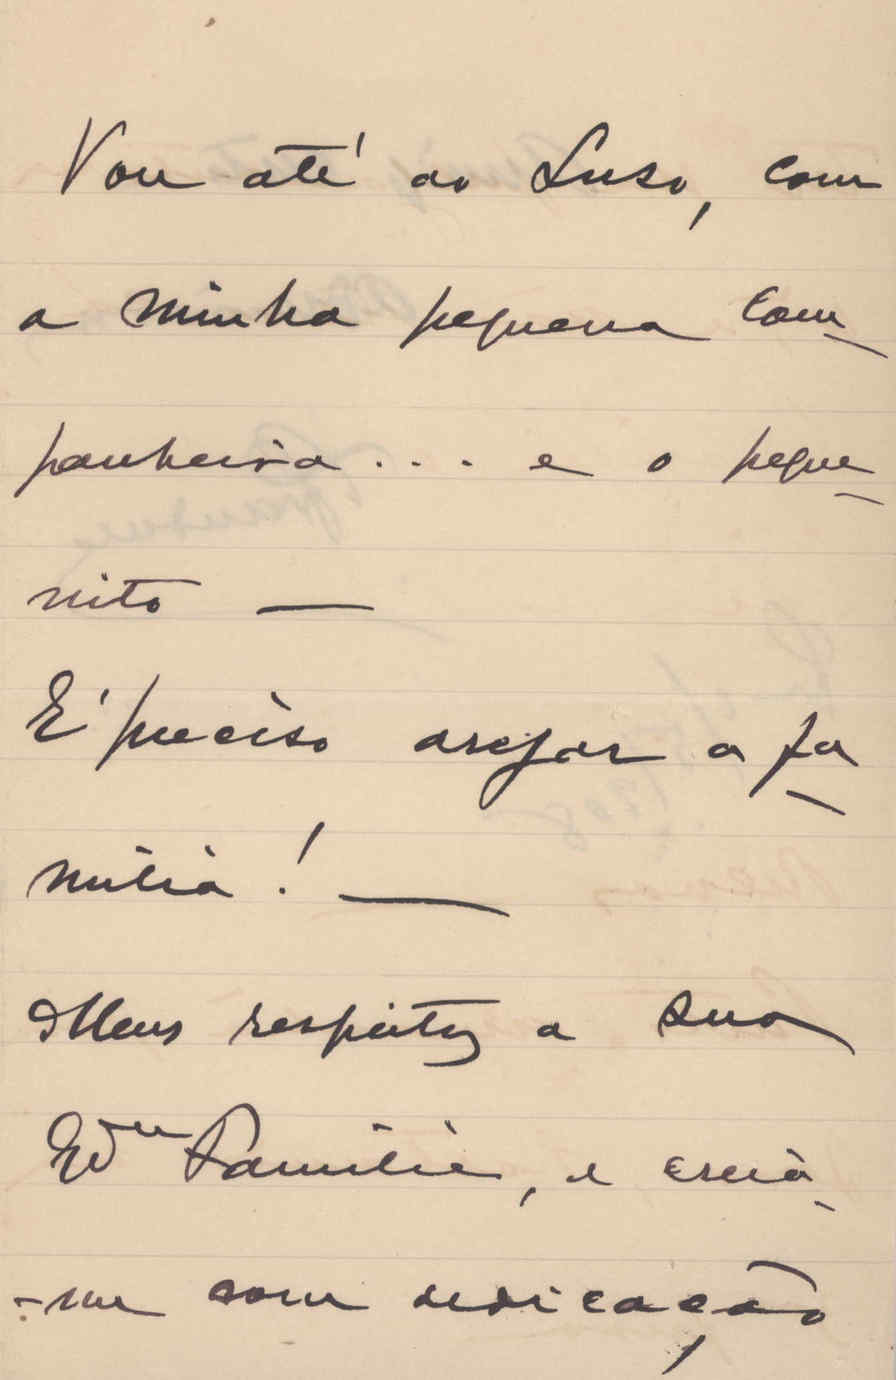 Vou até ao Luso, com
a minha pequena com-
panheira... e o peque-
nito —
E' preciso arejar a fa-
milia! —
Meus respeitos a sua
Exma Familia, e creia-
-me com dedicação